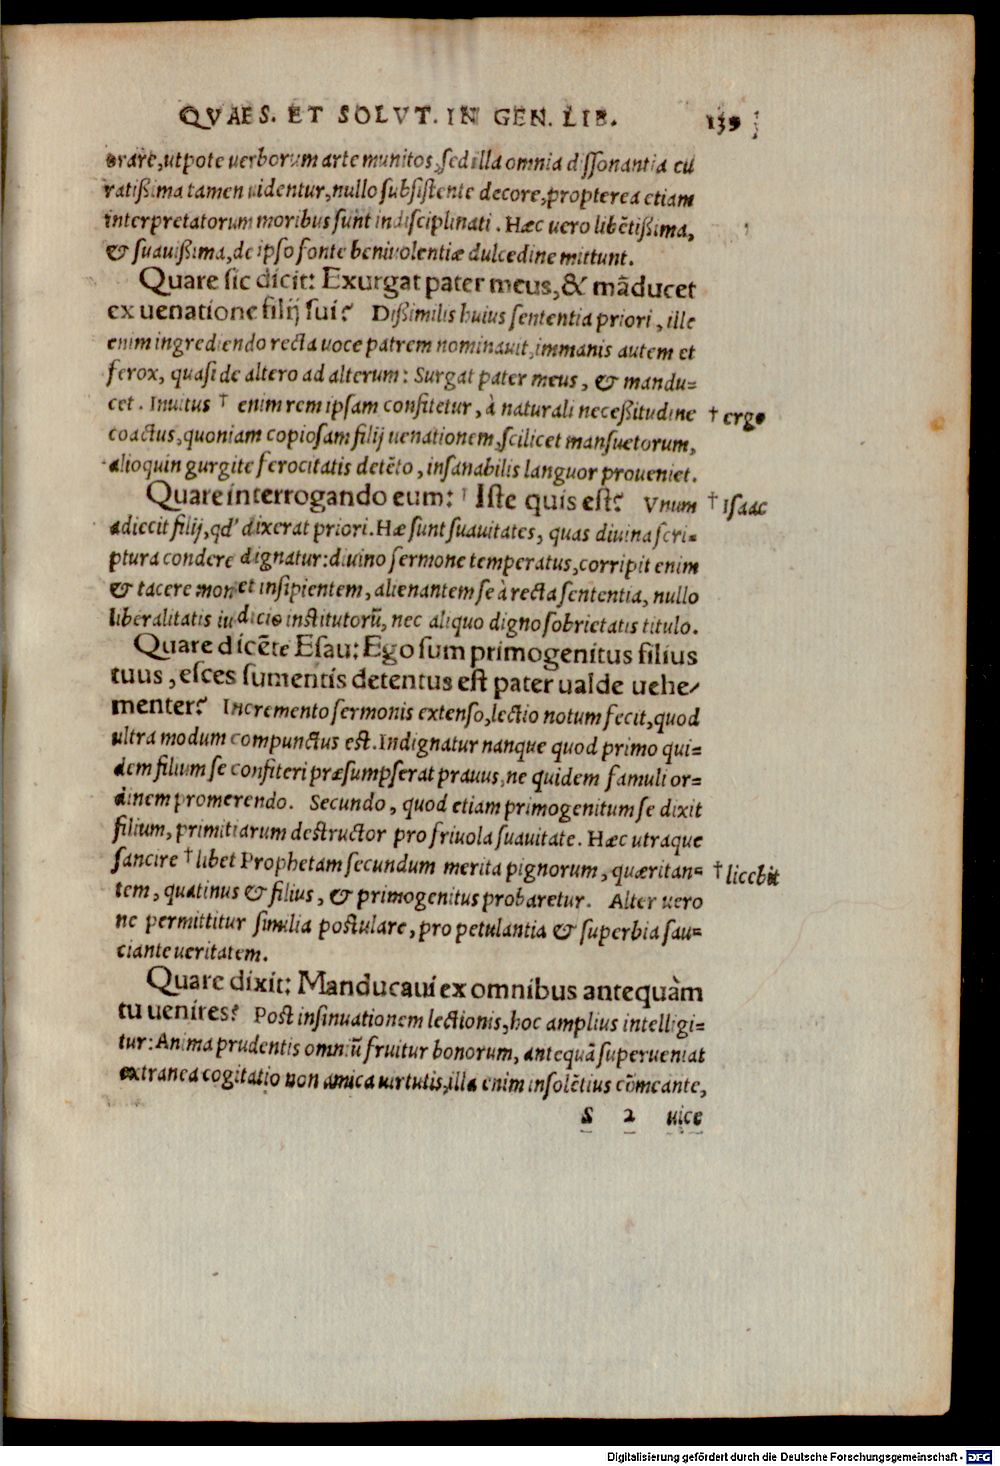 QVAES. ET SOLVT. IN GEN. LIB. 139
orare, utpote uerborum arte munitos, sed illa omnia dissonantia cu
ratißima tamen uidentur, nullo subsistente decore, propterea etiam
interpretatorum moribus sunt indisciplinati. Hæc uero libētißima,
& suauißima, de ipso fonte beniuolentiæ dulcedine mittunt.
Quare sic dicit: Exurgat pater meus, & māducet
ex uenatione filij sui? Dißimilis huius sententia priori, ille
enim ingrediendo recta uoce patrem nominauit, immanis autem et
ferox, quasi de altero ad alterum: Surgat pater meus, & mandu=
cet. Inuitus † enim rem ipsam confitetur, à naturali neceßitudine † ergo
coactus, quoniam copiosam filij uenationem, scilicet mansuetorum,
alioquin gurgite ferocitatis detēto, insanabilis languor proueniet.
Quare interrogando eum: † Iste quis est? Vnum † Isaac
adiecit filij, qd' dixerat priori. Hæ sunt suauitates, quas diuina scri=
ptura condere dignatur: diuino sermone temperatus, corripit enim
& tacere monet insipientem, alienantem se à recta sententia, nullo
liberalitatis iudicio institutorū, nec aliquo digno sobrietatis titulo.
Quare dicēte Esau: Ego sum primogenitus filius
tuus, esces sumentis detentus est pater ualde uehe/
menter? Incremento sermonis extenso, lectio notum fecit, quod
ultra modum compunctus est. Indignatur nanque quod primo qui=
dem filium se confiteri præsumpserat prauus, ne quidem famuli or=
dinem promerendo. Secundo, quod etiam primogenitum se dixit
filium, primitiarum destructor pro friuola suauitate. Hæc utraque
sancire † libet Prophetam secundum merita pignorum, quæritan= † licebit
tem, quatinus & filius, & primogenitus probaretur. Alter uero
ne permittitur similia postulare, pro petulantia & superbia sau=
ciante ueritatem.
Quare dixit: Manducaui ex omnibus antequàm
tu uenires? Post insinuationem lectionis, hoc amplius intelligi=
tur: Anima prudentis omniū fruitur bonorum, antequā superueniat
extranea cogitatio non amica uirtutis, illa enim insolētius cōmeante,
S 2 uice
Digitalisierung gefördert durch die Deutsche Forschungsgemeinschaft - DFG